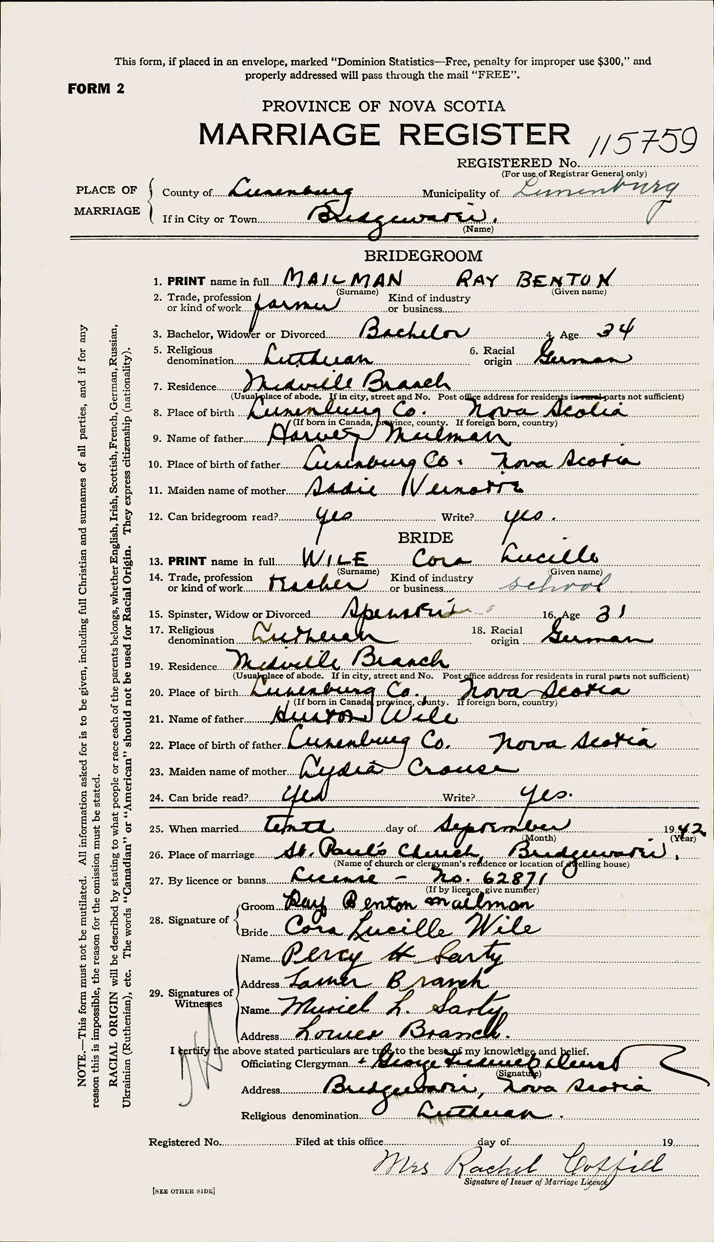 This form, if placed in an envelope, marked “Dominion Statistics—Free, penalty for improper use $300,” and
properly addressed will pass through the mail “FREE”.
FORM 2
PROVINCE OF NOVA SCOTIA
MARRIAGE REGISTER
115759
REGISTERED No.
(For use of Registrar General only)
PLACE OF MARRIAGE
County of Lunenburg Municipality of Lunenburg
If in City or Town Bridgewater.
(Name)
BRIDEGROOM
1. PRINT name in full MAILMAN RAY BENTON
(Surname) (Given name)
2. Trade, profession or kind of work farmer Kind of industry or business
3. Bachelor, Widower or Divorced Bachelor 4. Age 34
5. Religious denomination Lutheran 6. Racial origin German
7. Residence Midville Branch
(Usual place of abode. If in city, street and No. Post office address for residents in rural parts not sufficient)
8. Place of birth Lunenburg Co. Nova Scotia
(If born in Canada, province, county. If foreign born, country)
9. Name of father Harvey Mailman
10. Place of birth of father Lunenburg Co. Nova Scotia
11. Maiden name of mother Sadie
12. Can bridegroom read? yes Write? yes.
BRIDE
13. PRINT name in full WILE Cora Lucille
(Surname) (Given name)
14. Trade, profession or kind of work Teacher Kind of industry or business school
15. Spinster, Widow or Divorced Spinster 16. Age 31
17. Religious denomination Lutheran 18. Racial origin German
19. Residence Midville Branch
(Usual place of abode. If in city, street and No. Post office address for residents in rural parts not sufficient)
20. Place of birth Lunenburg Co., Nova Scotia
(If born in Canada, province, county. If foreign born, country)
21. Name of father Wile
22. Place of birth of father Lunenburg Co. Nova Scotia
23. Maiden name of mother Lydia Crouse
24. Can bride read? yes Write? yes.
25. When married tenth day of September 1942
(Month) (Year)
26. Place of marriage St. Paul's Church, Bridgewater.
(Name of church or clergyman's residence or location of dwelling house)
27. By licence or banns License - No. 62871
(If by licence, give number)
28. Signature of
Groom Ray Benton Mailman
Bride Cora Lucille Wile
29. Signatures of Witnesses
Name Percy H Sarty
Address Lower Branch
Name Muriel L. Sarty
Address Lower Branch.
I certify the above stated particulars are true to the best of my knowledge and belief.
Officiating Clergyman George
(Signature)
Address Bridgewater, Nova Scotia
Religious denomination Lutheran.
Registered No. Filed at this office day of 19
Mrs Rachel Coffill
Signature of Issuer of Marriage Licence
[SEE OTHER SIDE]
NOTE.—This form must not be mutilated. All information asked for is to be given, including full Christian and surnames of all parties, and if for any
reason this is impossible, the reason for the omission must be stated.
RACIAL ORIGIN will be described by stating to what people or race each of the parents belongs, whether English, Irish, Scottish, French, German, Russian,
Ukrainian (Ruthenian), etc. The words “Canadian” or “American” should not be used for Racial Origin. They express citizenship (nationality).